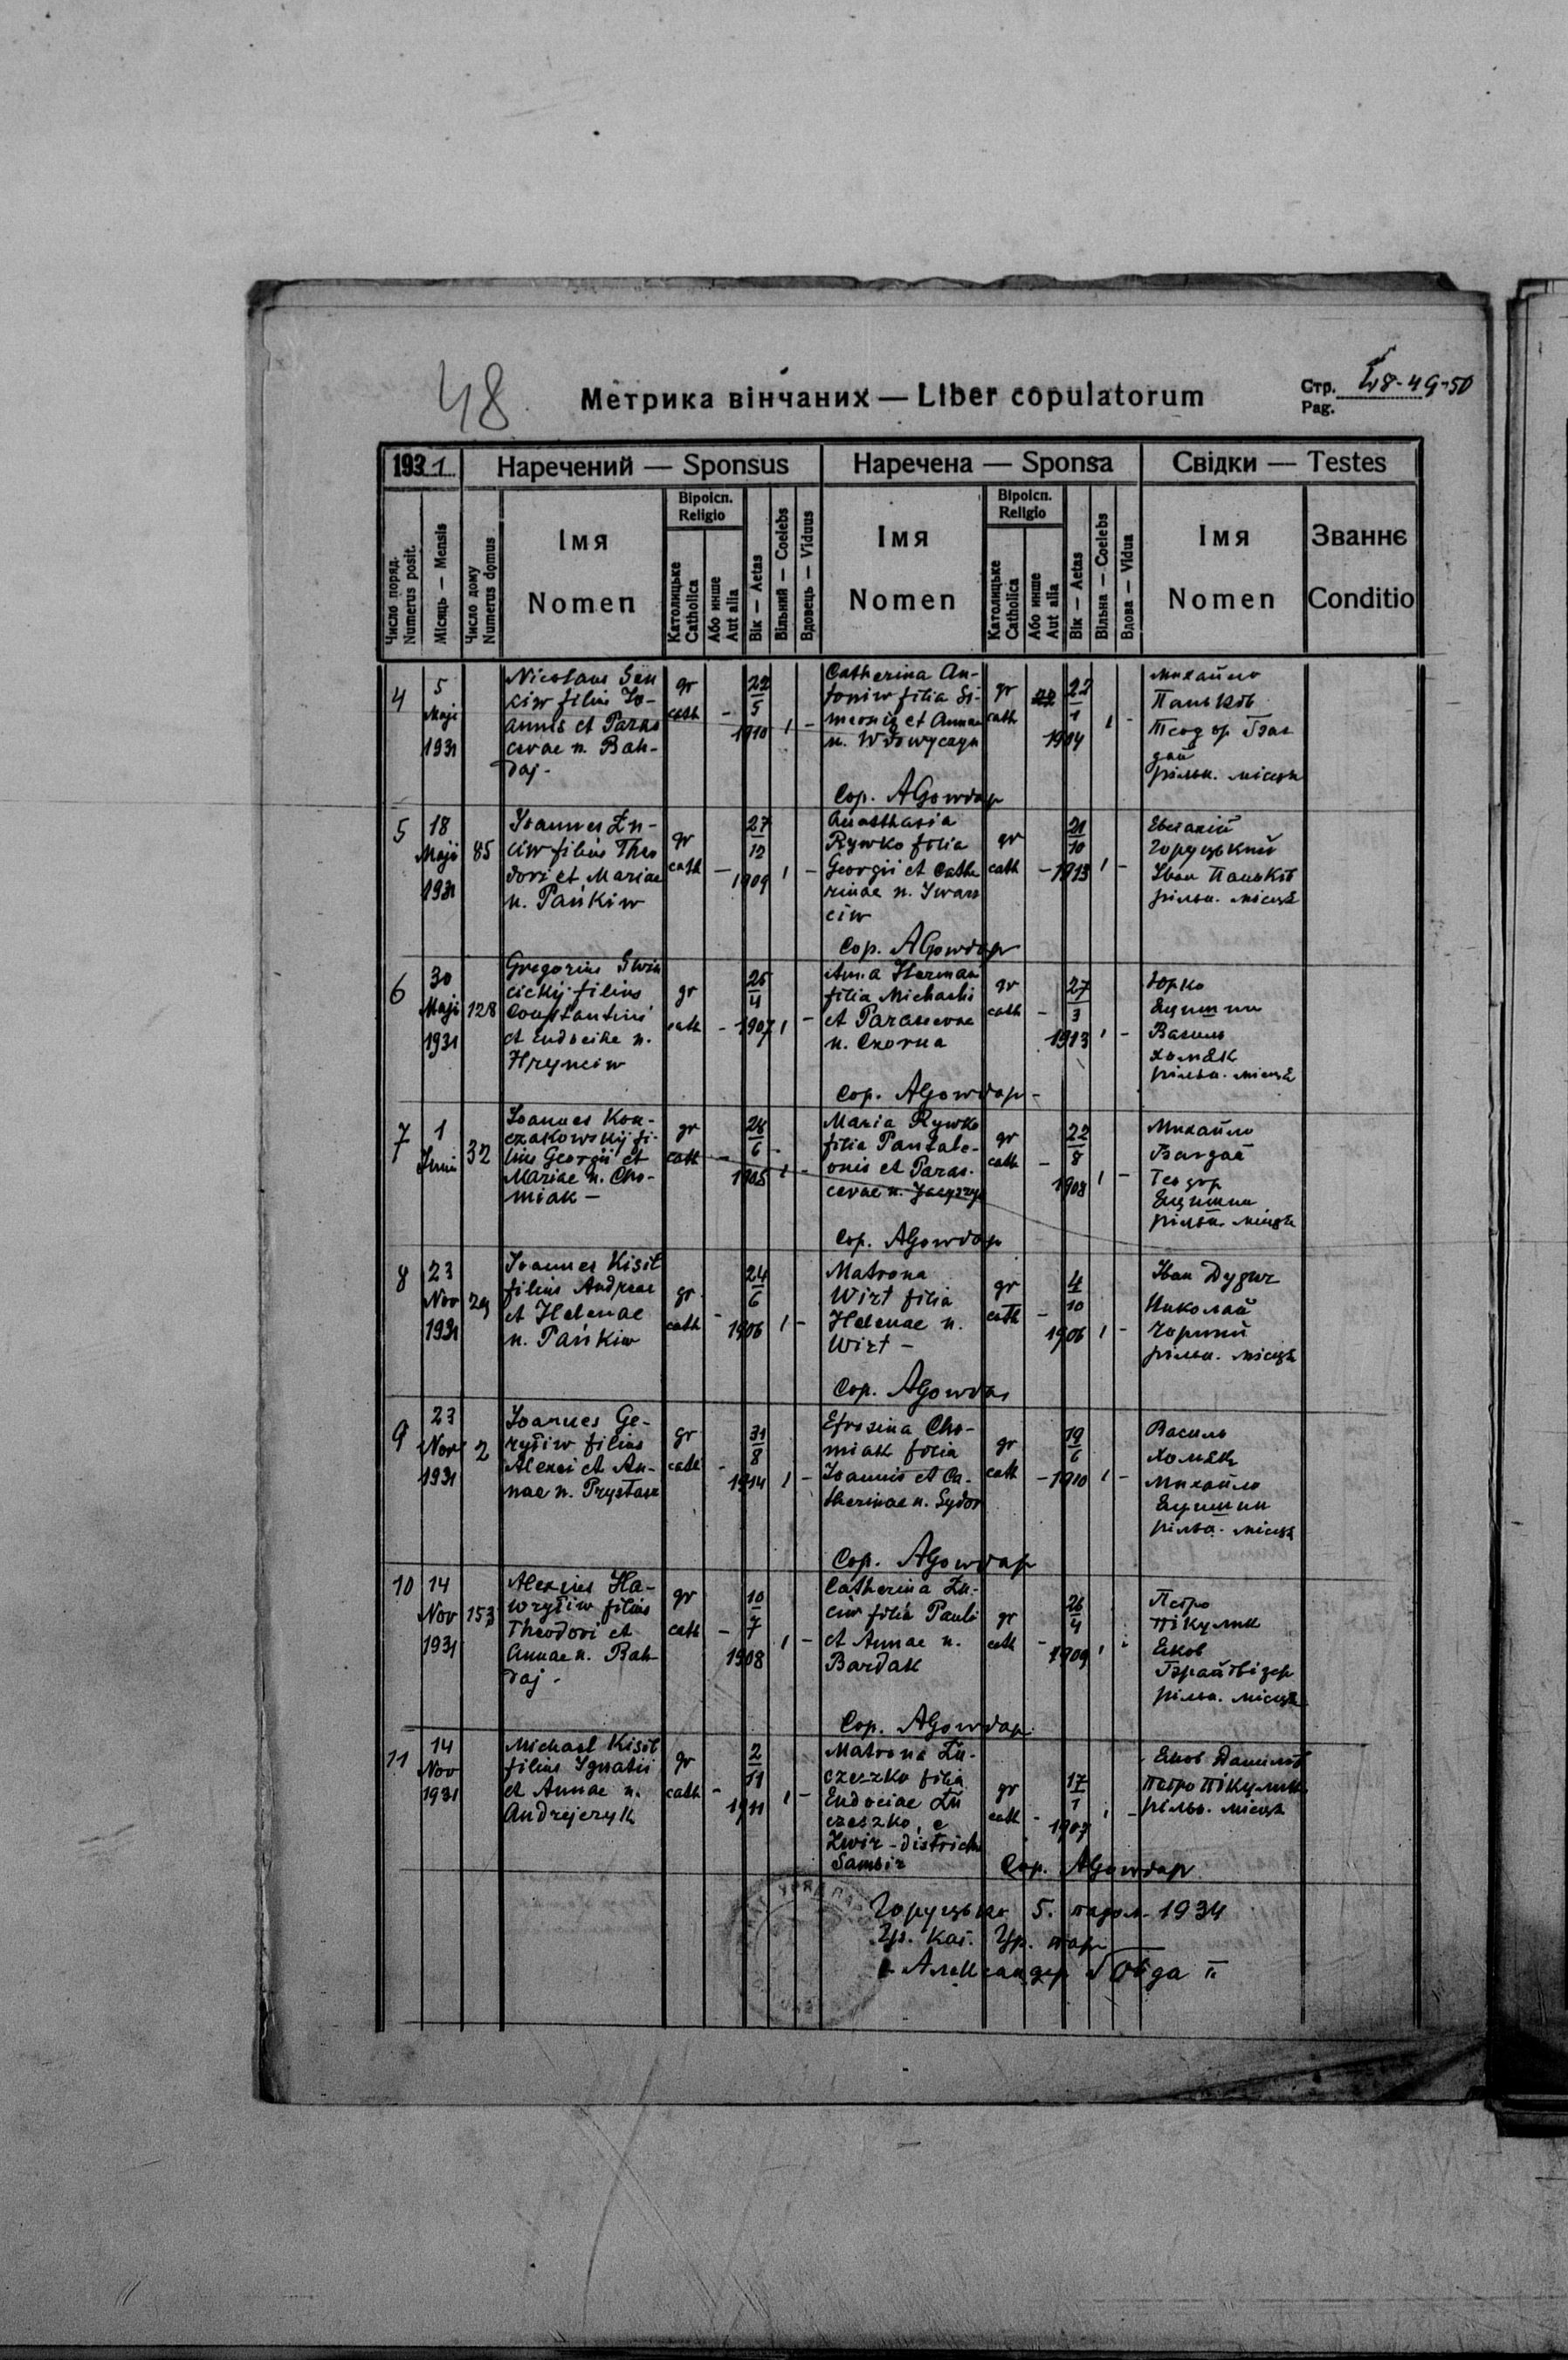 48
Метрика вінчаних — Liber copulatorum
Стр. 48-49-50
Pag.
1931
Наречений — Sponsus
Наречена — Sponsa
Свідки — Testes
Число поряд. Numerus posit.
Місяць — Mensis
Число дому Numerus domus
Імя Nomen
Віроісп. Religio
Католицьке Catholica
Або инше Aut alia
Вік — Aetas
Вільний — Coelebs
Вдовець — Viduus
Імя Nomen
Віроісп. Religio
Католицьке Catholica
Або инше Aut alia
Вік — Aetas
Вільна — Coelebs
Вдова — Vidua
Імя Nomen
Званнє Conditio
4
5 Maji 1931
Nicolaus
ciw filius Jo-
annis et Paras
cevae n. Bah-
daj -
gr cath
22/5 1910
Catherina An-
toniw filia Si-
meonis et Annae
n. Wdowyczyn
gr cath
22/1 1914
Михайло
Паньків
Теодор Баг
дай
рільн. місцев
Cop. AGowdap
5
18 Maji 1931
85
Joannes Łu-
ciw filius Theo
dori et Mariae
n. Pańkiw
gr cath
27/12 1909
Anasthasia
Rywko filia
Georgii et Cathe
rinae n. Iwas
ciw
gr cath
21/10 1913
Евстахій
Горуцький
Іван Паньків
рільн. місцев
Cop. AGowdap
6
30 Maji 1931
128
Gregorius Swin
cickij filius
Constantini
et Eudocihe n.
Hrynciw
gr cath
25/4 1907
Anna Herman
filia Michaelis
et Parascevae
n. Czorna
gr cath
27/3 1913
Юрко
Яцишин
Василь
Хомяк
рільн. місцев
Cop. AGowdap -
7
1 Juni
32
Joannes Kon-
czakowskij fi-
lius Georgii et
Mariae n. Cho-
miak -
gr cath
28/6 1905
Maria Rywko
filia Pantale-
onis et Paras-
cevae n.
gr cath
22/8 1908
Михайло
Багдай
Теодор
Яцишин
рільн. місцев
Cop. AGowdap
8
23 Nov 1931
29
Joannes Kisil
filius Andreae
et Helenae
n. Pańkiw
gr cath
24/6 1906
Matrona
Wirt filia
Helenae n.
Wirt -
gr cath
4/10 1906
Іван Дудич
Николай
Чорний
рільн. місцев
Cop. AGowdap
9
23 Nov 1931
2
Joannes Ge-
ryliw filius
Alexei et An-
nae n. Prystasz
gr cath
31/8 1914
Efrosina Cho-
miak filia
Joannis et Ca-
therinae n. Sydor
gr cath
19/6 1910
Василь
Хомяк
Михайло
Яцишин
рільн. місцев
Cop. AGowdap
10
14 Nov 1931
153
Alexius Ha-
wryliw filius
Theodori et
Annae n. Bah-
daj -
gr cath
10/7 1908
Catherina Łu-
ciw filia Pauli
et Annae n.
Bardak
gr cath
26/4 1909
Петро
Пікулик
Яков
рільн. місцев
Cop. AGowdap
11
14 Nov 1931
Michael Kisil
filius Ignatii
et Annae n.
Andrejczyk
gr cath
2/11 1911
Matrona Łu-
czeszko filia
Eudociae Łu
czeszko, e
Zwir - districtu
Sambir
gr cath
17/1 1907
Яков Данилів
Петро Пікулик
рільн. місцев
Cop. AGowdap
Горуцько 5. падол. 1934
Гр. кат. Ур. пар
Александер